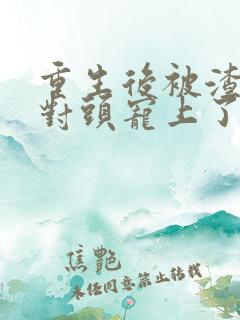 重生後被渣
對頭寵上了
焦艷
未经同意禁止转载